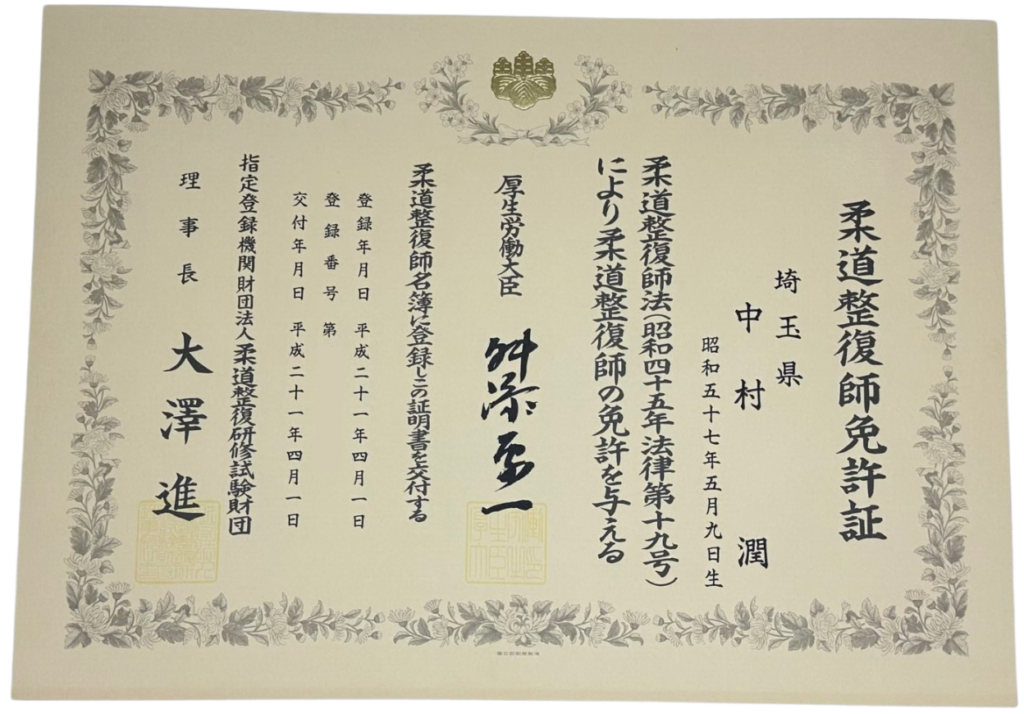 柔道整復師免許証
埼玉県
中村 潤
昭和五十七年五月九日生
柔道整復師法(昭和四十五年法律第十九号)
により柔道整復師の免許を与える
厚生労働大臣 舛添要一
柔道整復師名簿に登録しこの証明書を交付する
登録年月日 平成二十一年四月一日
登録番号 第
交付年月日 平成二十一年四月一日
指定登録機関財団法人柔道整復研修試験財団
理事長 大澤進